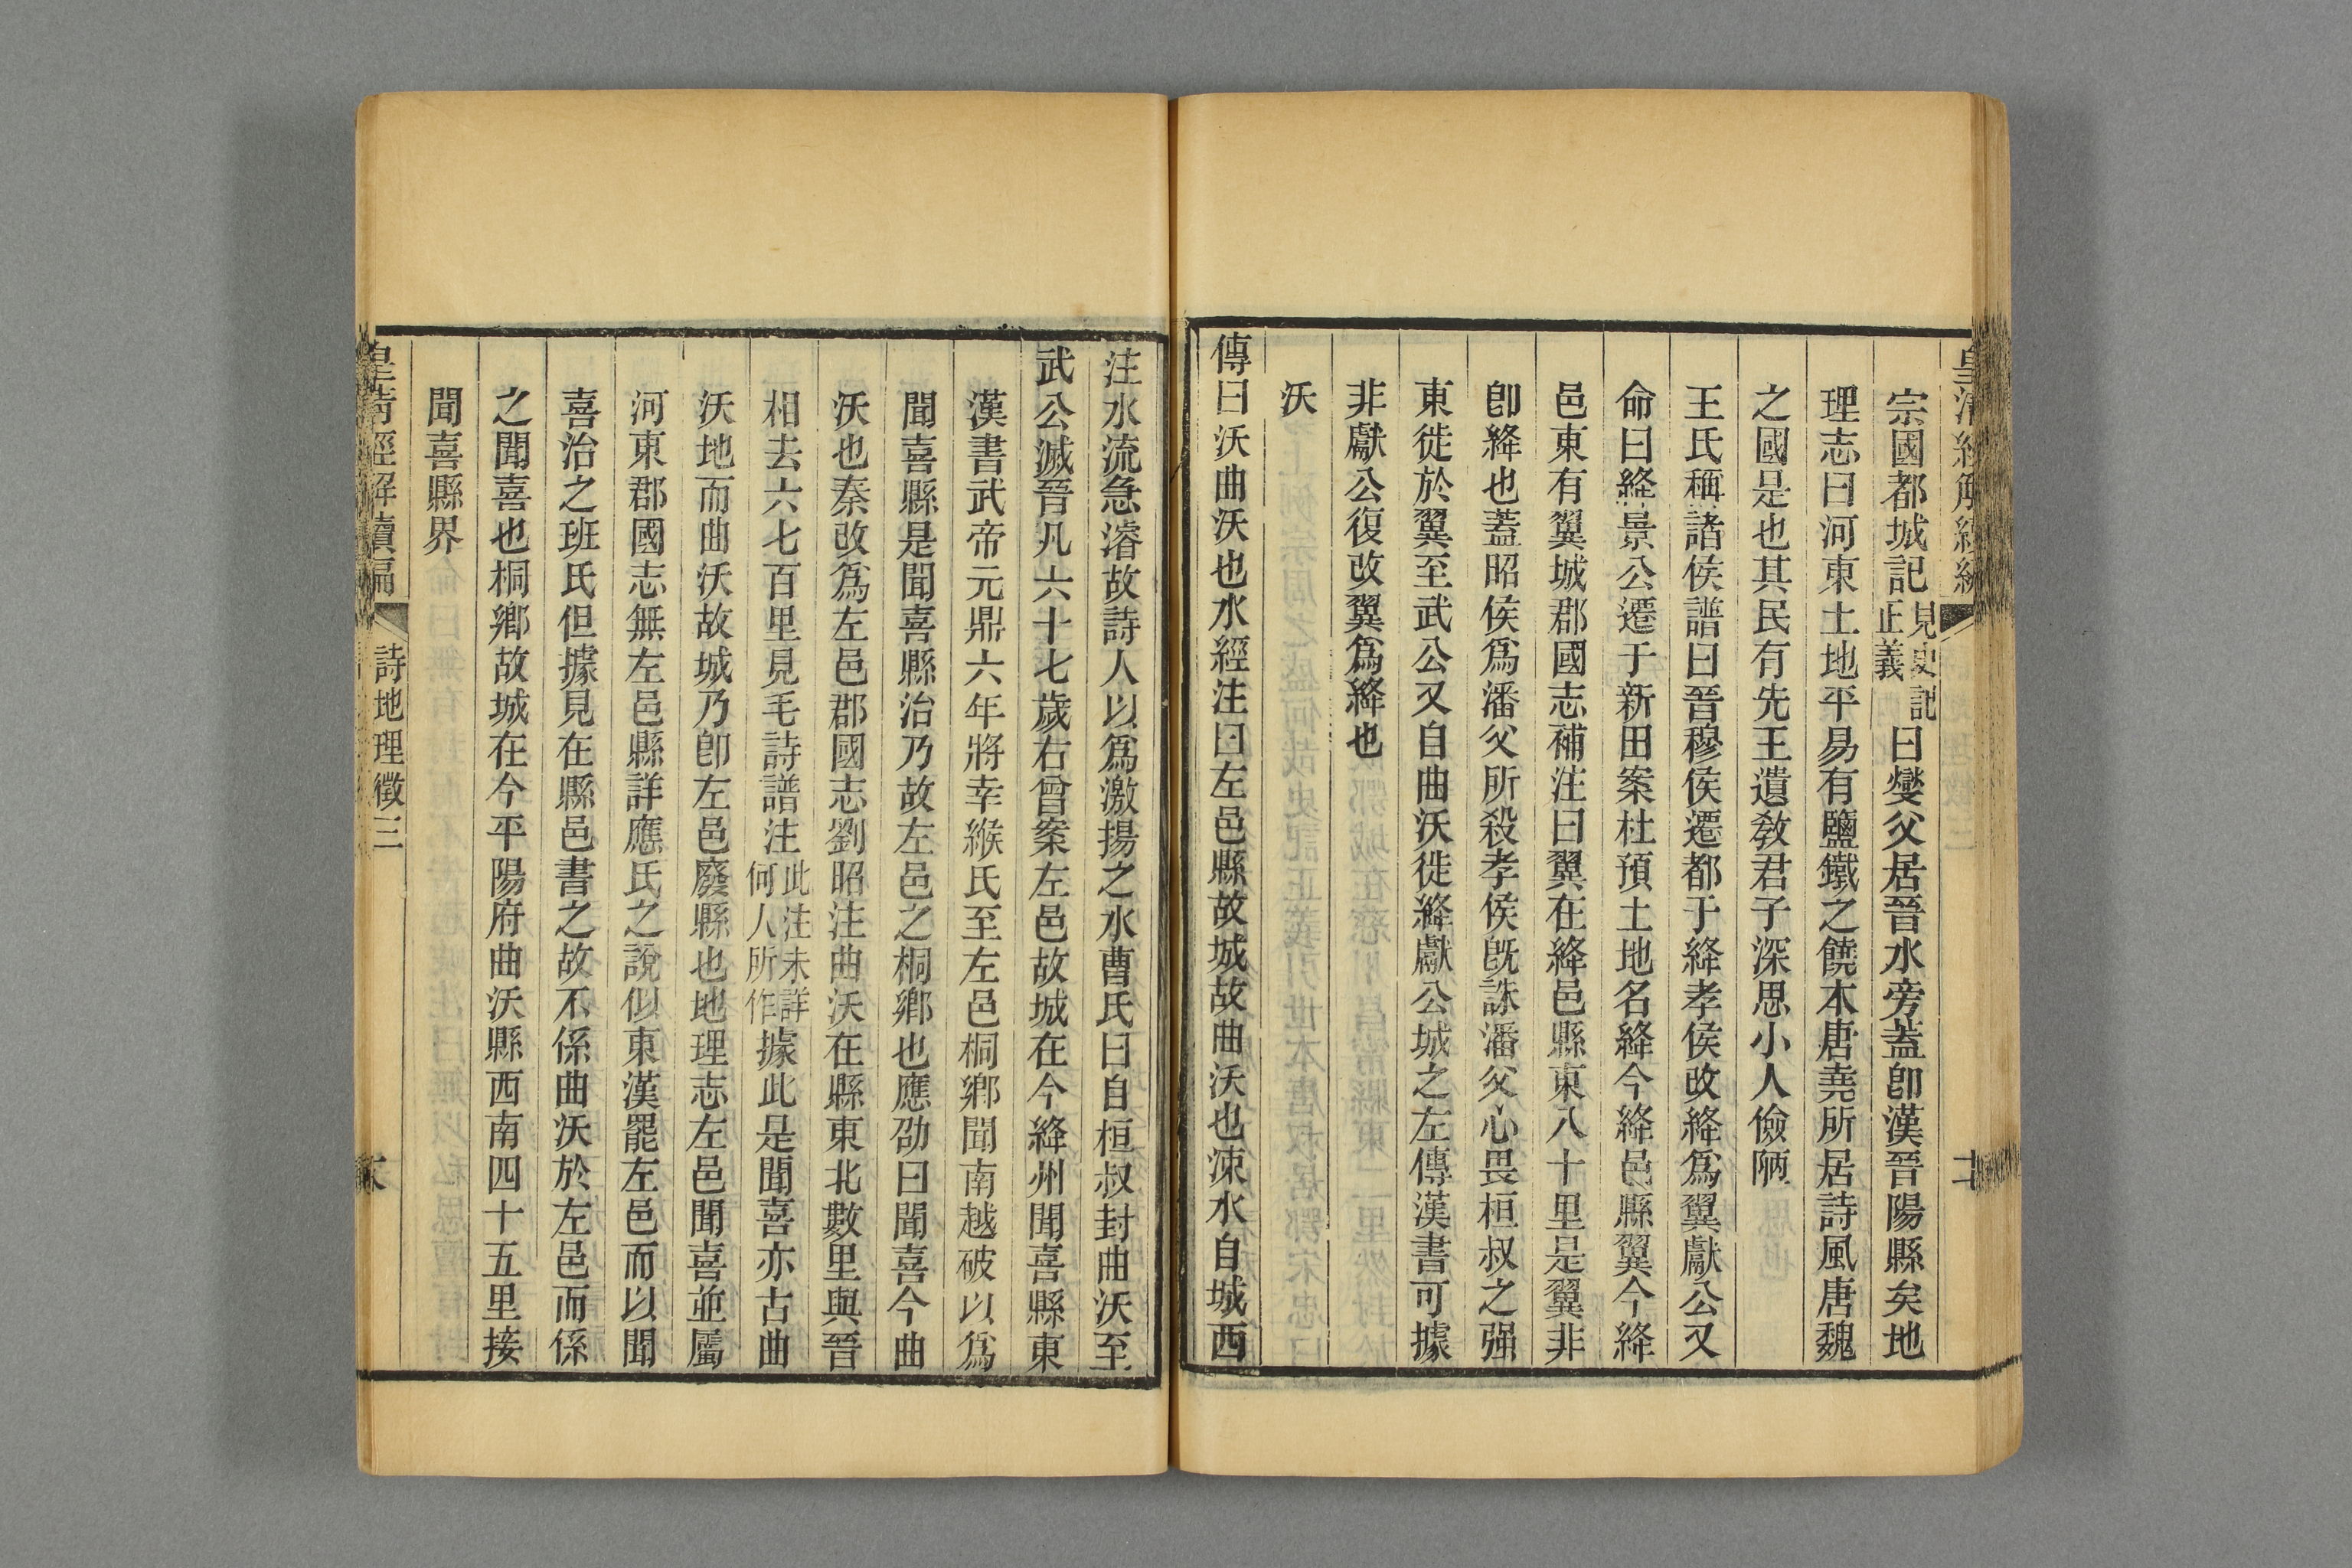 皇清經解續編
宗國都城記見史記正義曰燮父居晉水旁蓋卽漢晉陽縣矣地
理志曰河東土地平易有鹽鐵之饒本唐堯所居詩風唐魏
之國是也其民有先王遺敎君子深思小人儉陋
王氏稱諸侯譜曰晉穆侯遷都于絳孝侯改絳爲翼獻公又
命曰絳景公遷于新田案杜預土地名絳今絳邑縣翼今絳
邑東有翼城郡國志補注曰翼在絳邑縣東八十里是翼非
卽絳也蓋昭侯爲潘父所殺孝侯旣誅潘父心畏桓叔之强
東徙於翼至武公又自曲沃徙絳獻公城之左傳漢書可據
非獻公復改翼爲絳也
沃
傳曰沃曲沃也水經注曰左邑縣故城故曲沃也涑水自城西
注水流急濬故詩人以爲激揚之水曹氏曰自桓叔封曲沃至
武公滅晉凡六十七歲右曾案左邑故城在今絳州聞喜縣東
漢書武帝元鼎六年將幸緱氏至左邑桐鄉聞南越破以爲
聞喜縣是聞喜縣治乃故左邑之桐鄉也應劭曰聞喜今曲
沃也秦改爲左邑郡國志劉昭注曲沃在縣東北數里與晉
相去六七百里見毛詩譜注此注未詳何人所作據此是聞喜亦古曲
沃地而曲沃故城乃卽左邑廢縣也地理志左邑聞喜並屬
河東郡國志無左邑縣詳應氏之說似東漢罷左邑而以聞
喜治之班氏但據見在縣邑書之故不係曲沃於左邑而係
之聞喜也桐鄉故城在今平陽府曲沃縣西南四十五里接
聞喜縣界
皇淸經解續編
詩地理徵三